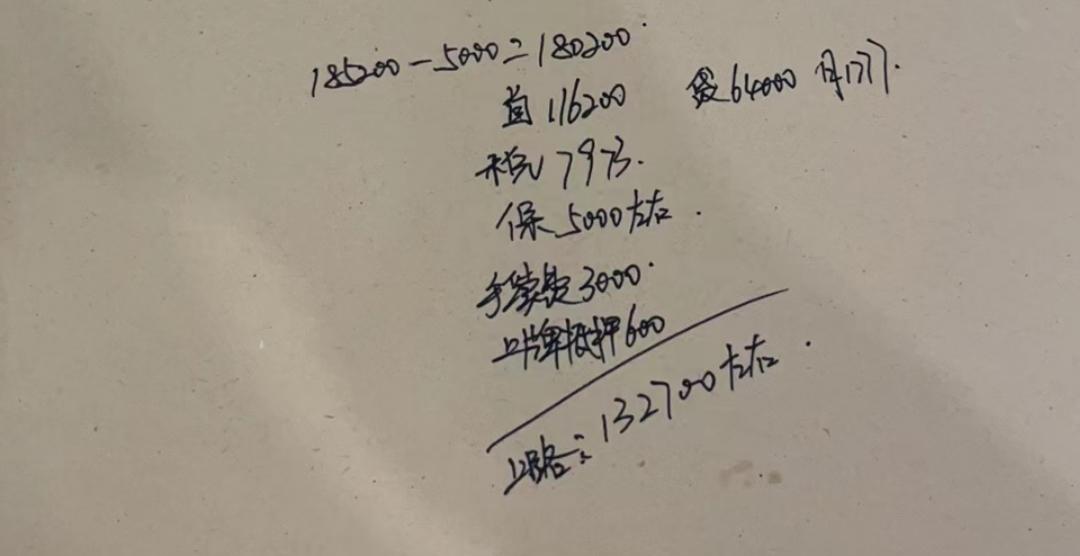 185200-5000=180200
首116200 贷64000 月1777.
税 7973.
保 5000左右.
手续费3000.
上牌抵押600
上路:132700左右.